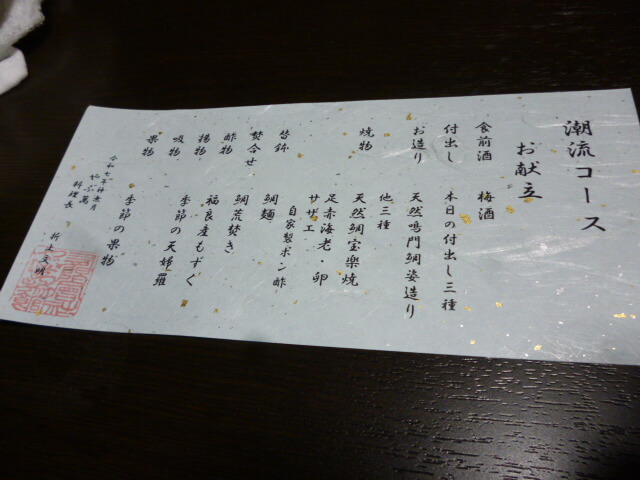 潮流コース
お献立
食前酒　梅酒
付出し　本日の付出し三種
お造り　天然鳴門鯛姿造り
他三種
焼物　天然鯛宝楽焼
足赤海老・卵
サザエ
自家製ポン酢
替鉢　鯛麺
焚合せ　鯛荒焚き
酢物　福良産もずく
揚物　季節の天婦羅
吸物
果物　季節の果物
令和七年神無月
やぶ萬
料理長